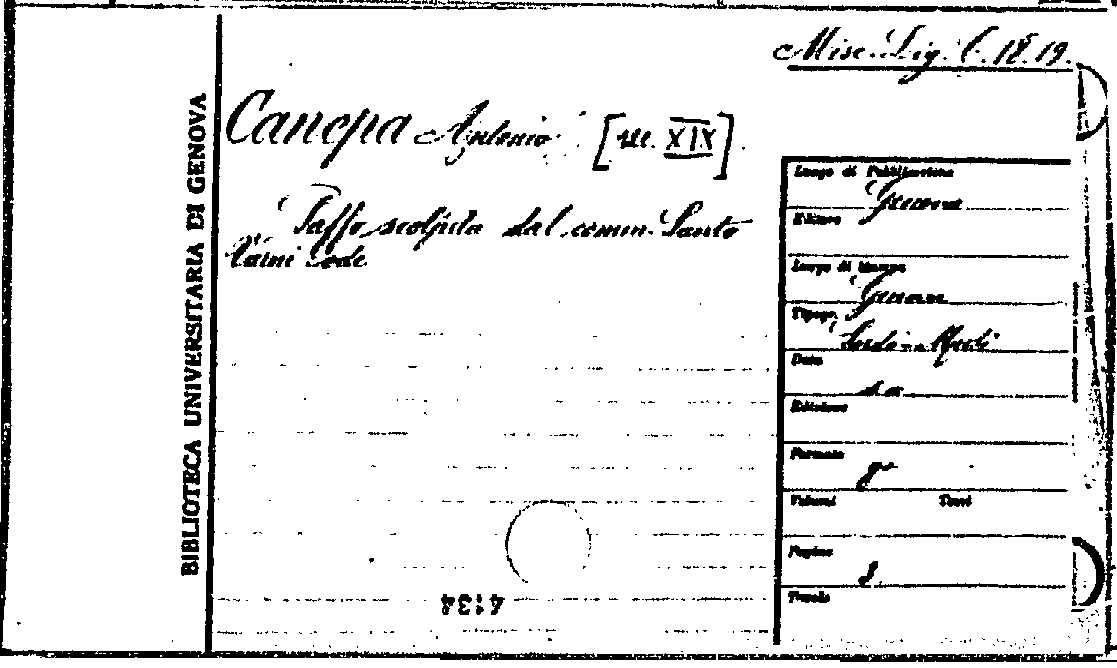 BIBLIOTECA UNIVERSITARIA DI GENOVA
Misc. Lig. C. 18. 19.
Canepa Antonio [sec. XIX]
Saffo scolpita dal comm. Santo
Varni Ode
Luogo di Pubblicazione
Genova
Editore
Luogo di Stampa
Genova
Tipogr.
Data
s.a.
Edizione
Formato
8°
Volumi Tomi
Pagine
8
Tavole
4134